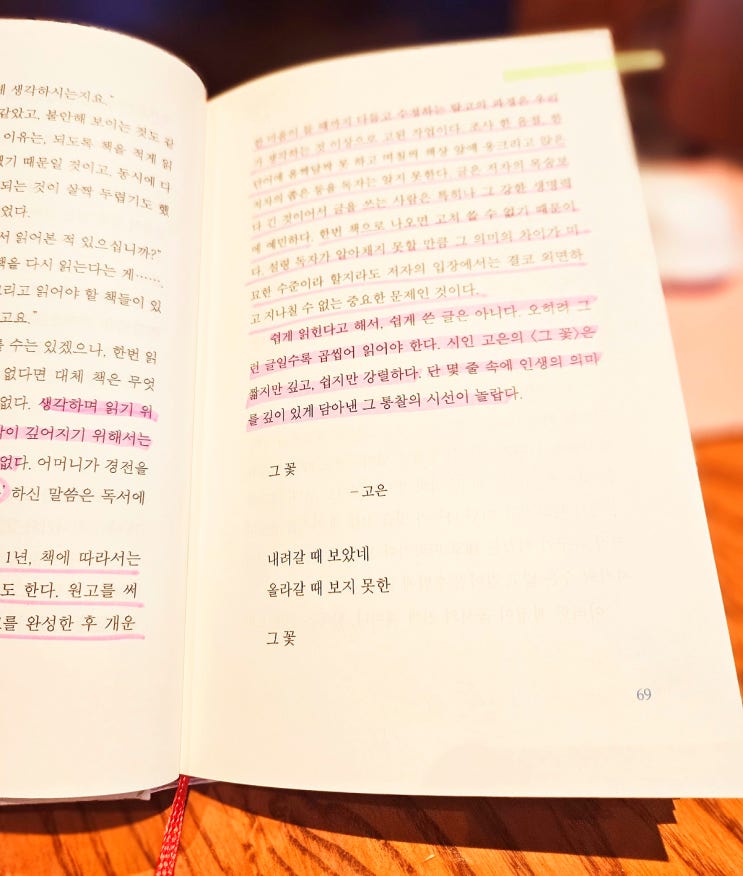 게 생각하시는지요."
같았고, 불안해 보이는 것도 같
이유는, 되도록 책을 적게 읽
기 때문일 것이고, 동시에 다
되는 것이 살짝 두렵기도 했
었다.
서 읽어본 적 있으십니까?"
책을 다시 읽는다는 게…….
그리고 읽어야 할 책들이 있
고요."
를 수는 있겠으나, 한번 읽
없다면 대체 책은 무엇
없다. 생각하며 읽기 위
각이 깊어지기 위해서는
없다. 어머니가 경전을
하신 말씀은 독서에
1년, 책에 따라서는
도 한다. 원고를 써
를 완성한 후 개운
한 마음이 들 때까지 다듬고 수정하는 탈고의 과정은 우리
가 생각하는 것 이상으로 고된 작업이다. 조사 한 음절, 한
단어에 옴짝달싹 못 하고 며칠씩 책상 앞에 웅크리고 앉은
저자의 굽은 등을 독자는 알지 못한다. 글은 저자의 목숨보
다 긴 것이어서 글을 쓰는 사람은 특히나 그 강한 생명력
에 예민하다. 한번 책으로 나오면 고쳐 쓸 수 없기 때문이
다. 설령 독자가 알아채지 못할 만큼 그 의미의 차이가 미
묘한 수준이라 할지라도 저자의 입장에서는 결코 외면하
고 지나칠 수 없는 중요한 문제인 것이다.
쉽게 읽힌다고 해서, 쉽게 쓴 글은 아니다. 오히려 그
런 글일수록 곱씹어 읽어야 한다. 시인 고은의 〈그 꽃〉은
짧지만 깊고, 쉽지만 강렬하다. 단 몇 줄 속에 인생의 의미
를 깊이 있게 담아낸 그 통찰의 시선이 놀랍다.
그 꽃
– 고은
내려갈 때 보았네
올라갈 때 보지 못한
그 꽃
69